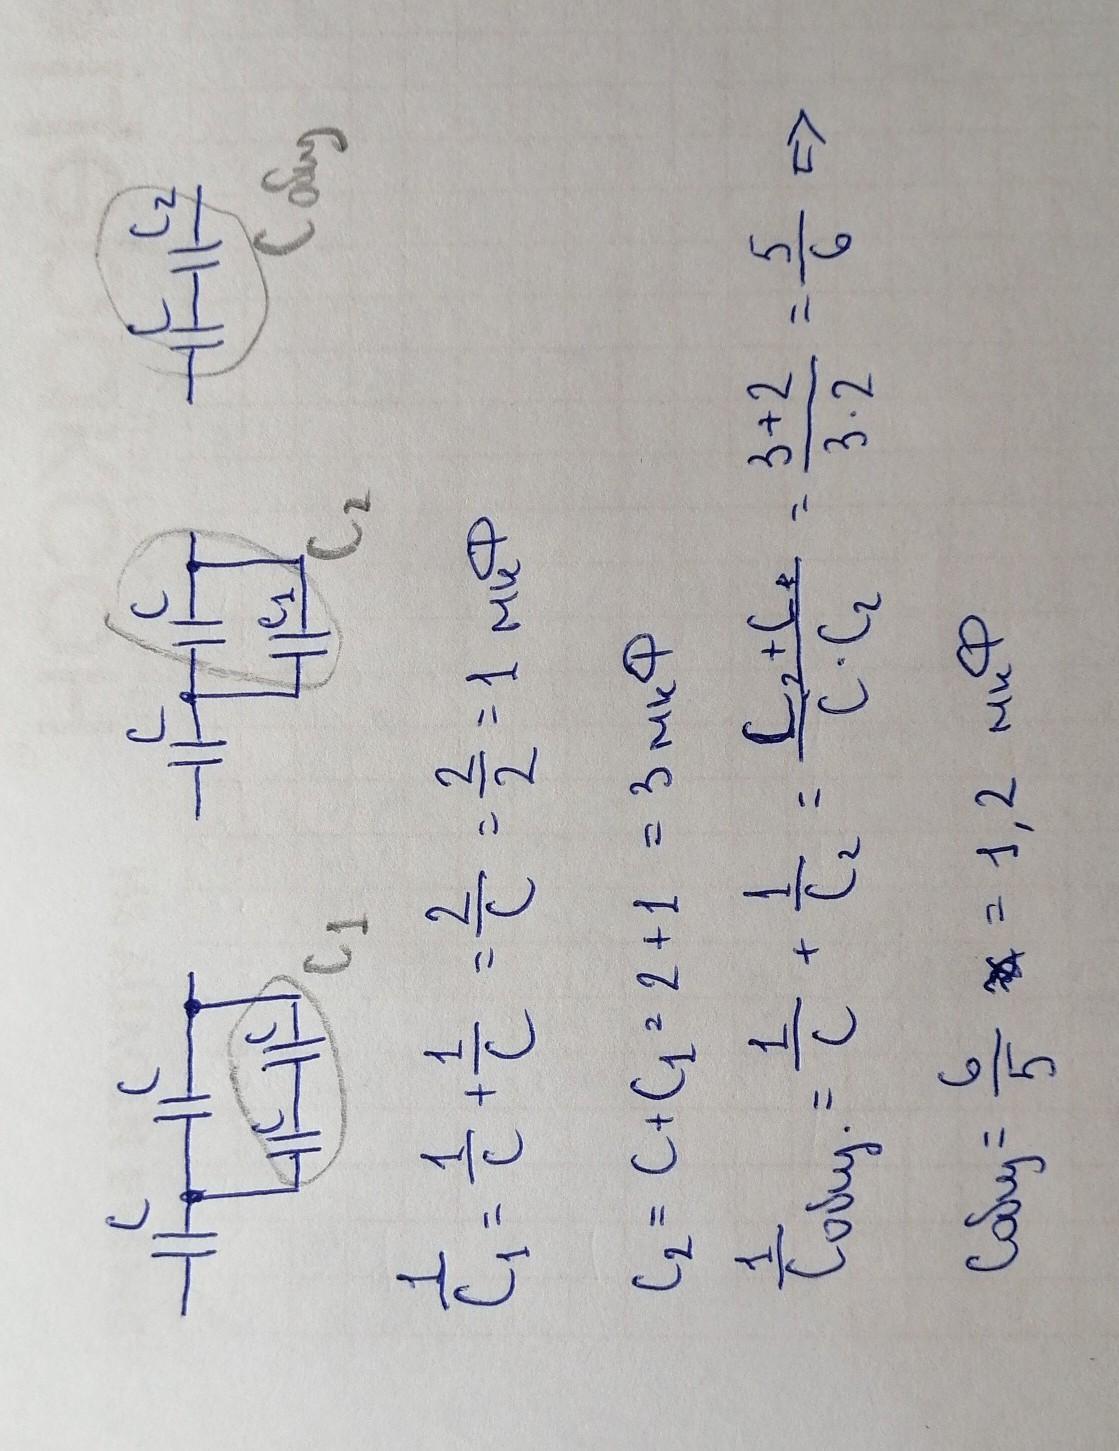 C C C C C₁
C C C₁ C₂
C C₂ Cобщ
1/C₁ = 1/C + 1/C = 2/C = 2/2 = 1 мкФ
C₂ = C + C₁ = 2 + 1 = 3 мкФ
1/Cобщ. = 1/C + 1/C₂ = (C₂ + C)/(C · C₂) = (3+2)/(3·2) = 5/6 =>
Cобщ = 6/5 = 1,2 мкФ